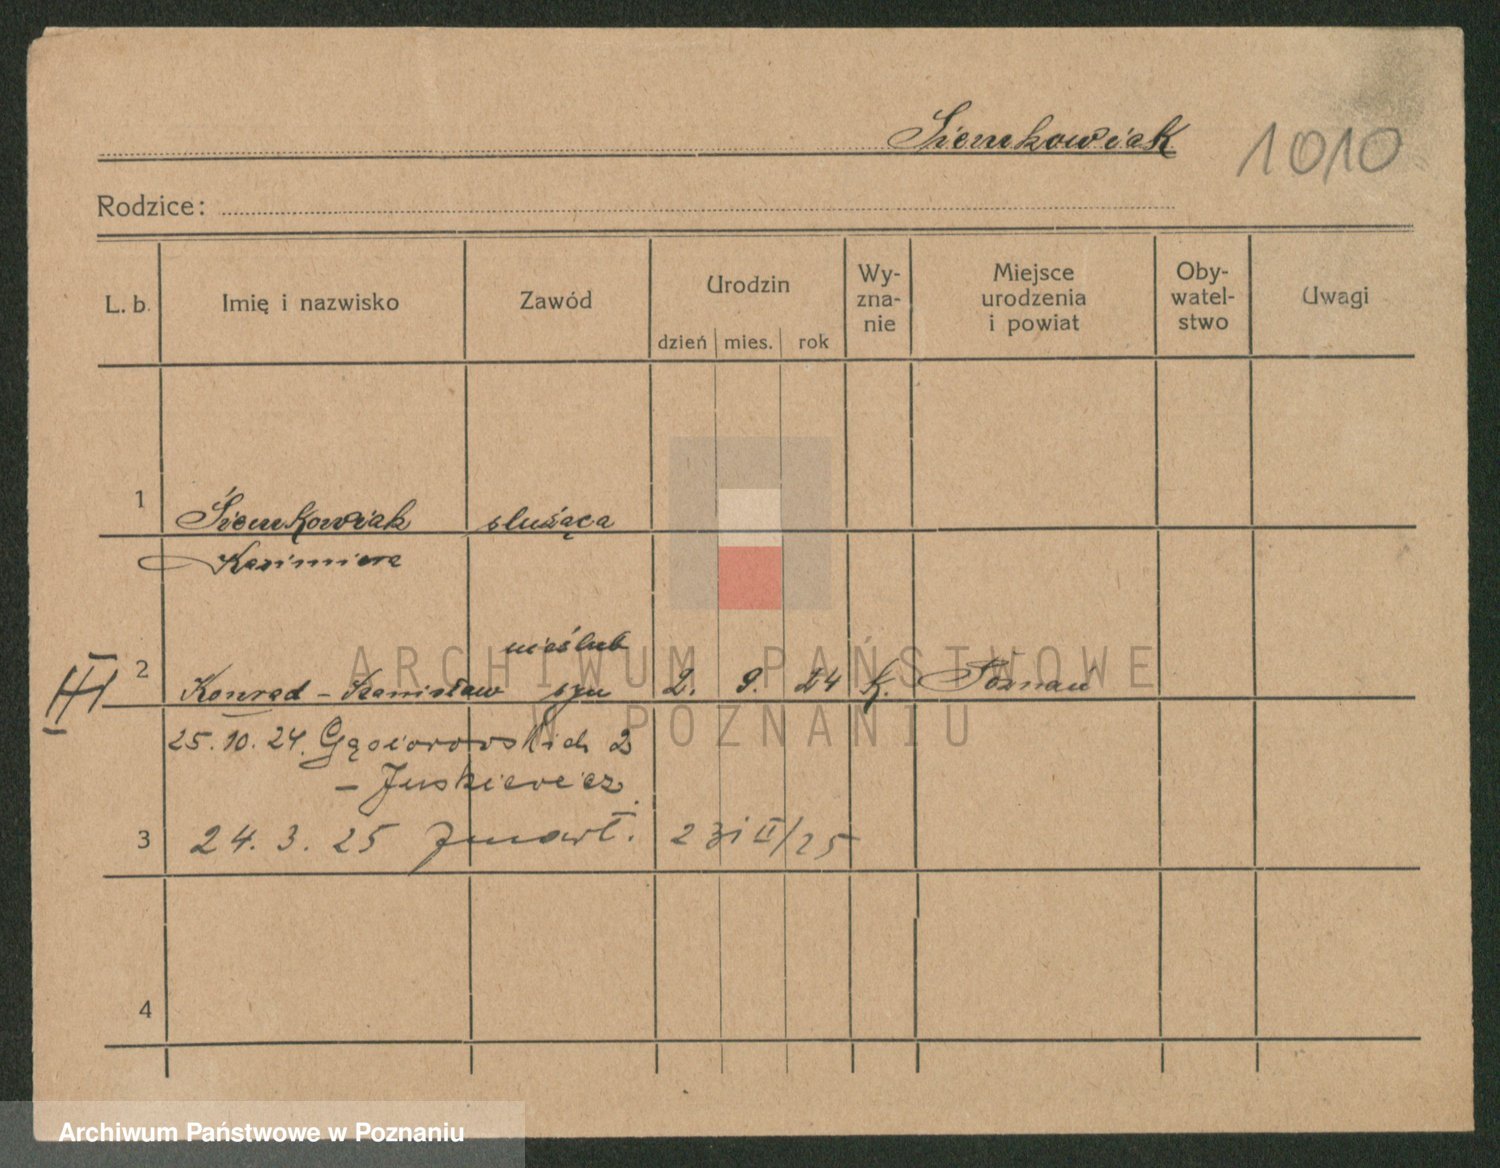 Siemkowiak 1010
Rodzice:
L. b. Imię i nazwisko Zawód Urodzin dzień mies. rok Wy-zna-nie Miejsce urodzenia i powiat Oby-watel-stwo Uwagi
1 Siemkowiak służąca
Kazimiera
nieślub
2 Konrad - Stanisław syn 2. 9. 24 K. Poznań
25.10.24. Gąsiorowskich 2
- Juskiewicz.
3 24. 3. 25 Zmarł. 23/II/25
4
ARCHIWUM PAŃSTWOWE
W POZNANIU
Archiwum Państwowe w Poznaniu